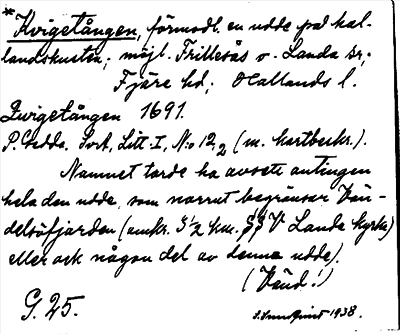 * Kvigetången, förmodl. en udde på hal-
landskusten; möjl. Frillesås o. Landa sr;
Fjäre hd; Hallands l.
Quigetången 1691.
P. Gedda. SvA, Litt. I, No 12,2 (m. kartbeskr.).
Namnet torde ha avsett antingen
hela den udde, som norrut begränsar Vän-
delsöfjorden (omkr. 3 1/2 km. V Landa kyrka)
eller ock någon del av denna udde).
(Vänd!)
G. 25.
1938.